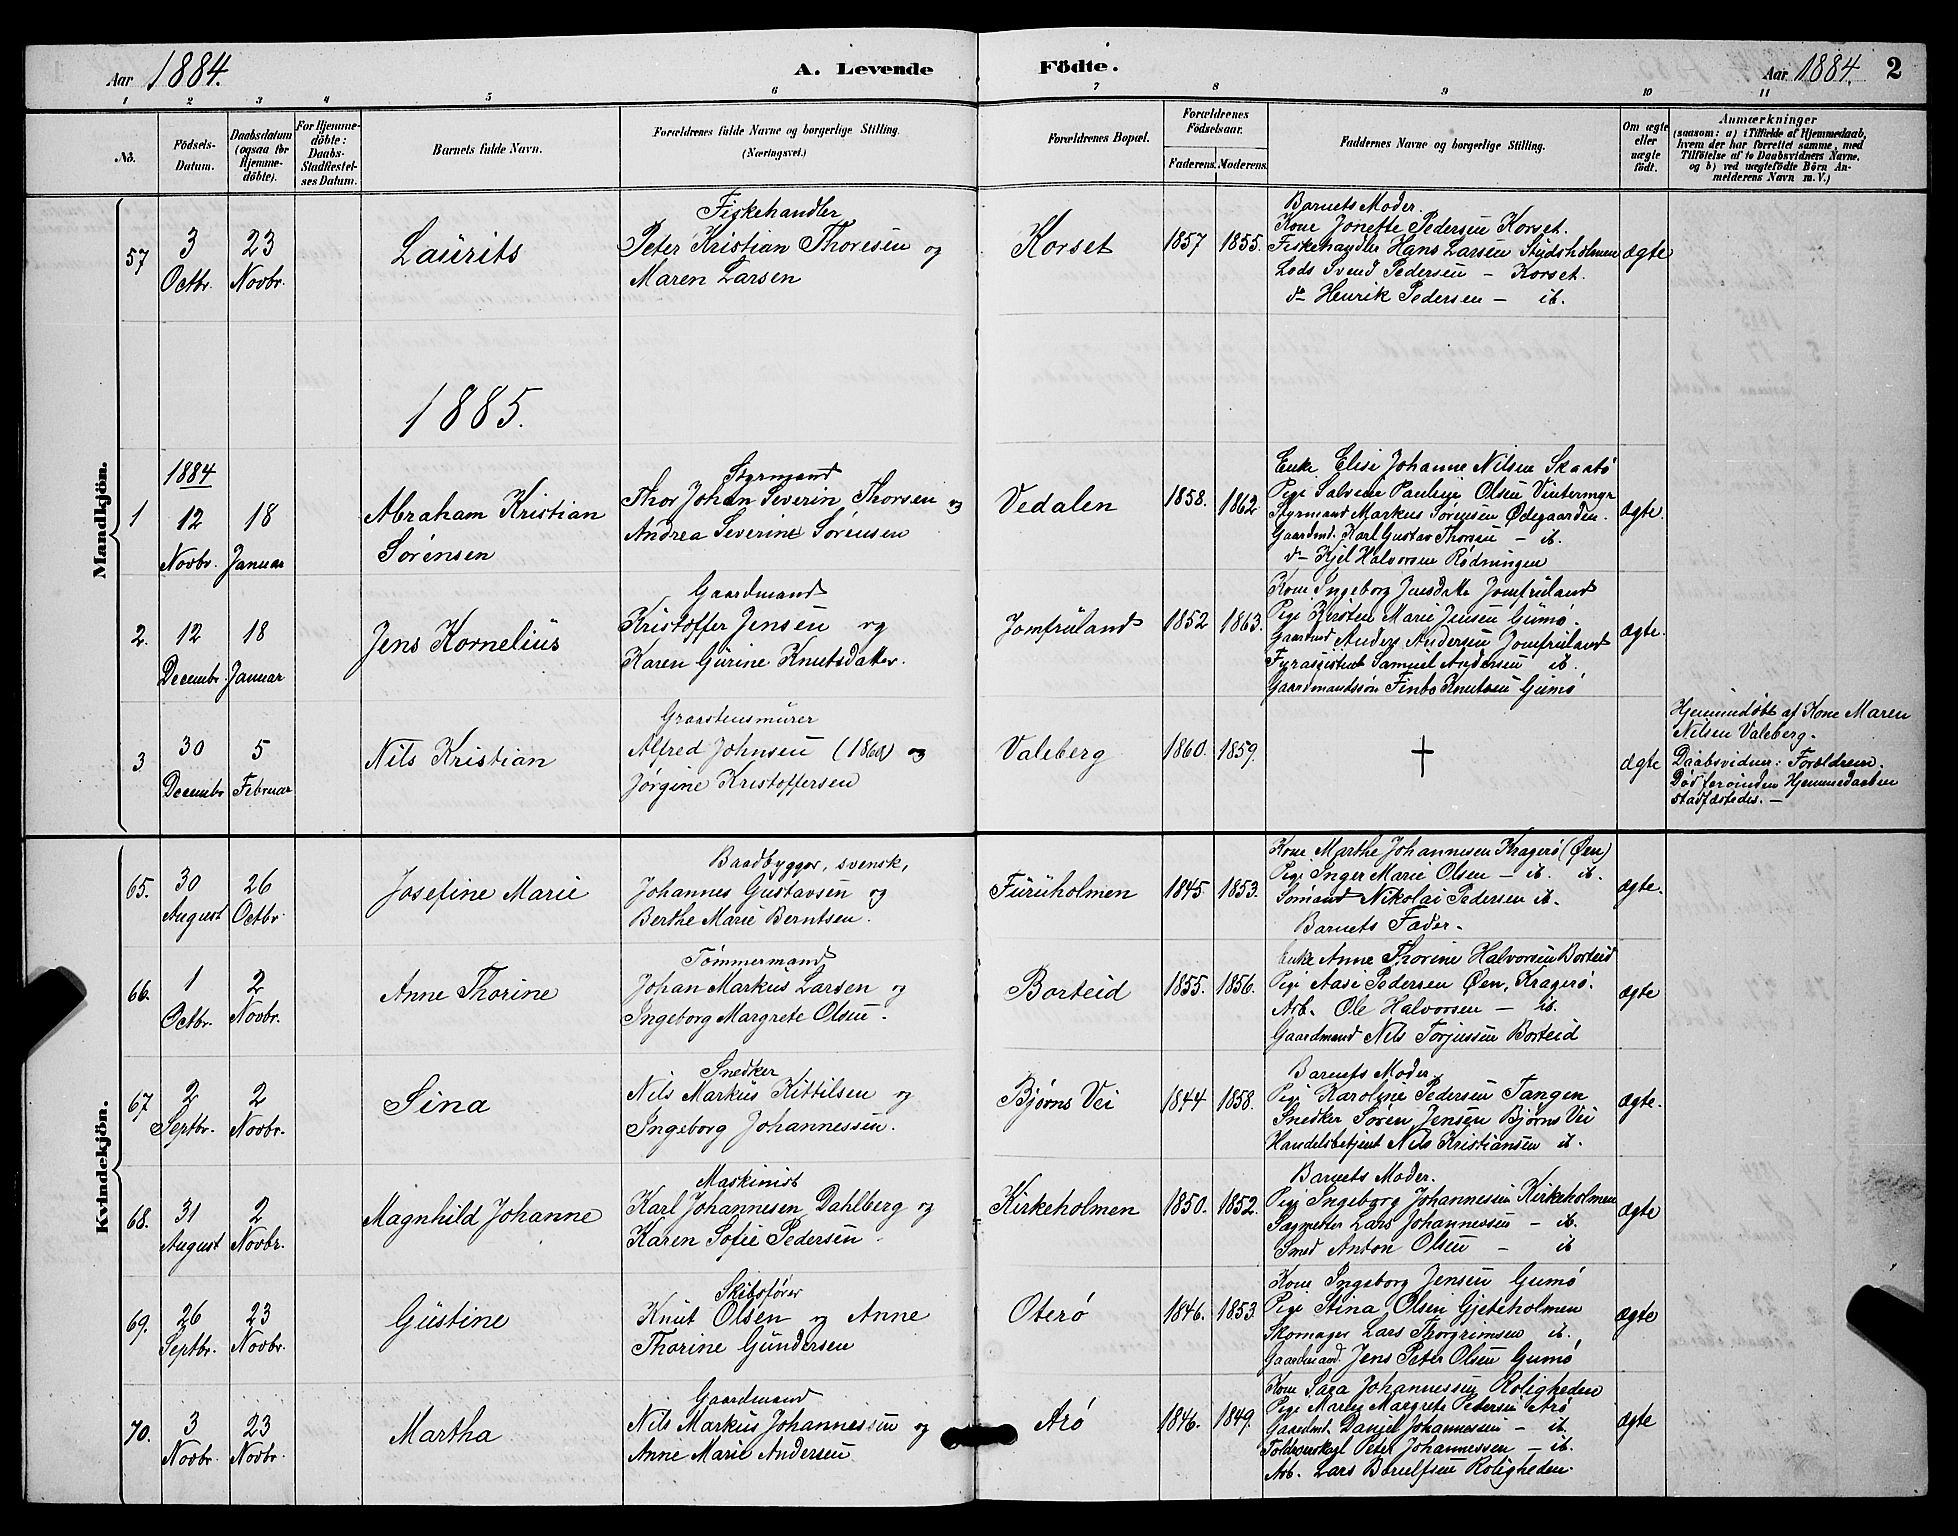 Aar 1884. A. Levende Födte. Aar 1884. 2
1 2 3 4 5 6 7 8 9 10 11
Nö.
Födsels-Datum.
Daabsdatum (ogsaa for Hjemme-döbte).
For Hjemme-döbte: Daabs-Stadfæstel-ses Datum.
Barnets fulde Navn.
Forældrenes fulde Navne og borgerlige Stilling.
(Næringsvei.)
Forældrenes Bopæl.
Forældrenes Födselsaar.
Faderens. Moderens.
Faddernes Navne og borgerlige Stilling.
Om ægte eller uægte födt.
Anmærkninger
(saasom: a) i Tilfælde af Hjemmedaab,
hvem der har forrettet samme, med
Tilföielse af to Daabsvidners Navne.
og b) ved uægtefödte Börn An-
melderens Navn m. V.)
Mandkjön.
57 3 Octbr. 23 Novbr. Laurits
Fiskehandler
Peter Kristian Thoresen og
Maren Larsen
Korset 1857 1855.
Barnets Moder.
Kone Jonette Pedersen Korset.
Fiskehandler Hans Larsen Studsholmen
Lods Svend Pedersen – Korset.
do Henrik Pedersen – ib.
ægte
1885.
1 1884 12 Novbr. 18 Januar
Abraham Kristian
Sørensen
Styrmand
Thor Johan Severin Thorsen og
Andrea Severine Sørensen
Vedalen 1858. 1862
Enke Elise Johanne Nilsen Skaatø
Pige Salvine Pauline Olsen Vintermyr
Styrmand Markus Sørensen Ødegaarden.
Gaardmd. Karl Gustav Thorsen – ib.
do – Kjel Halvorsen Rødningen
ægte.
2. 12 Decembr. 18 Januar Jens Kornelius
Gaardmand
Kristoffer Jensen og
Karen Gurine Knutsdatter.
Jomfruland 1852 1863.
Kone Ingeborg Jensdatter Jomfruland
Pige Kirsten Marie Jensen Gumø.
Gaardmd Anders Andersen Jomfruland
Fyrassistent Samuel Andersen ib.
Gaardmandssøn Finbo Knutsen Gumø
ægte.
3 30 Decembr 5 Februar Nils Kristian
Graastensmurer
Alfred Johnsen (1860) og
Jørgine Kristoffersen
Valeberg 1860. 1859.
+
ægte
Hjemmedøbt af Kone Maren
Nilsen Valeberg.
Daabsvidner: Forældrene.
Død førinden Hjemmedaaben
stadfæstedes. –
Kvindekjön.
65. 30 August 26 Octbr. Josefine Marie
Baadbygger, svensk,
Johannes Gustavsen og
Berthe Marie Berntsen.
Furuholmen 1845 1853.
Kone Marthe Johannesen Kragerø (Øen)
Pige Inger Marie Olsen – ib. ib.
Sømand Nikolai Pedersen ib.
Barnets Fader.
ægte.
66. 1 Octbr. 2 Novbr. Anne Thorine
Tømmermand
Johan Markus Larsen og
Ingeborg Margrete Olsen.
Borteid 1855. 1856.
Enke Anne Thorine Halvorsen Borteid
Pige Aase Pedersen Øen, Kragerø.
Arb. Ole Halvorsen – ib.
Gaardmand Nils Torjussen Borteid
ægte
67 2 Septbr. 2 Novbr. Sina
Snedker
Nils Markus Kittilsen og
Ingeborg Johannessen.
Bjørns Vei 1844 1858.
Barnets Moder
Pige Karoline Pedersen Tangen
Snedker Søren Jensen Bjørns Vei
Handelsbetjent Nils Kristiansen ib.
ægte.
68. 31 August 2 Novbr. Magnhild Johanne
Maskinist
Karl Johannesen Dahlberg og
Karen Sofie Pedersen.
Kirkeholmen 1850. 1852.
Barnets Moder.
Pige Ingeborg Johannessen Kirkeholmen
Sagmester Lars Johannessen – ib.
Smed Anton Olsen – ib
ægte
69. 26 Septbr. 23 Novbr. Gustine
Skibsfører
Knut Olsen og Anne
Thorine Gundersen
Oterø 1846. 1853
Kone Ingeborg Jensen Gumø
Pige Stina Olsen Gjeteholmen
Skomager Lars Thorgrimsen ib.
Gaardmand Jens Peter Olsen Gumø
ægte
70. 3 Novbr. 23 Novbr. Martha
Gaardmand
Nils Markus Johannessen og
Anne Marie Andersen
Arø 1846. 1849.
Kone Sara Johannessen Roligheden
Pige Maren Margrete Petersen Arø
Gaardmd. Daniel Johannessen – ib.
Peter Johannessen – ib.
Arb. Lars Roligheden.
ægte